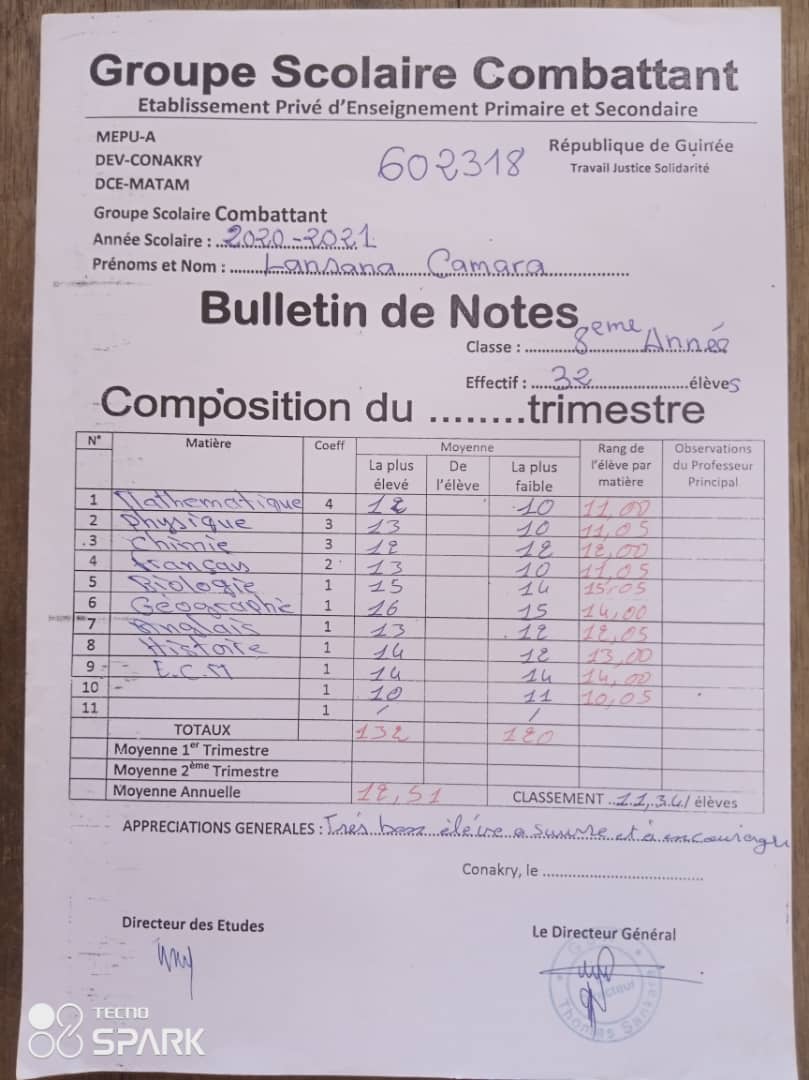 Groupe Scolaire Combattant
Etablissement Privé d'Enseignement Primaire et Secondaire
MEPU-A
DEV-CONAKRY
DCE-MATAM
602318
République de Guinée
Travail Justice Solidarité
Groupe Scolaire Combattant
Année Scolaire : 2020-2021
Prénoms et Nom : Lansana Camara
Bulletin de Notes
Classe : 8eme Année
Effectif : 32 élèves
Composition du ........trimestre
N° Matière Coeff Moyenne Rang de l'élève par matière Observations du Professeur Principal
La plus élevé De l'élève La plus faible
1 Mathematique 4 12 10 11,00
2 Physique 3 13 10 11,05
3 Chimie 3 12 12 12,00
4 français 2 13 10 11,05
5 Biologie 1 15 14 15,05
6 Géographie 1 16 15 14,00
7 Anglais 1 13 12 12,05
8 Histoire 1 14 12 13,00
9 E.C.M 1 14 14 14,00
10 - 1 10 11 10,05
11 1 / /
TOTAUX 132 120
Moyenne 1er Trimestre
Moyenne 2ème Trimestre
Moyenne Annuelle 12,51 CLASSEMENT / élèves
APPRECIATIONS GENERALES : Très bon élève a suivre et à encourager
Conakry, le
Directeur des Etudes
Le Directeur Général
Directeur
Thomas Sankara
TECNO
SPARK